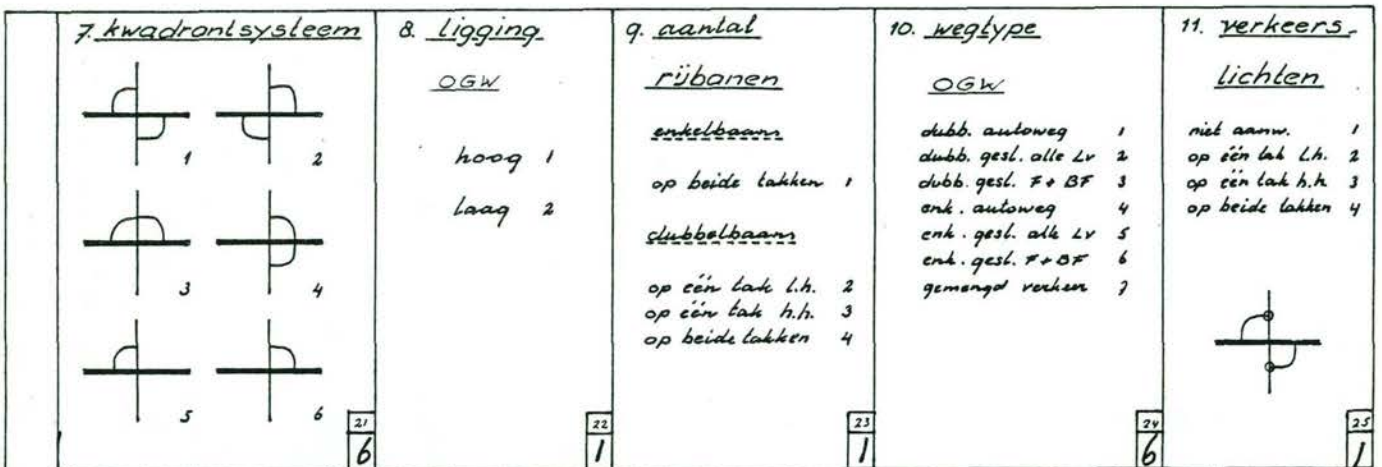 7. kwadrontsysteem
1 2
3 4
5 6
21
6
8. ligging
OGW
hoog 1
laag 2
22
1
9. aantal
rijbanen
enkelbaans
op beide takken 1
dubbelbaans
op één tak l.h. 2
op één tak h.h. 3
op beide takken 4
23
1
10. wegtype
OGW
dubb. autoweg 1
dubb. gesl. alle Lv 2
dubb. gesl. F + BF 3
enk. autoweg 4
enk. gesl. alle Lv 5
enk. gesl. F + BF 6
gemengd verkeer 7
24
6
11. verkeers-
lichten
niet aanw. 1
op één tak l.h. 2
op één tak h.h. 3
op beide takken 4
25
1